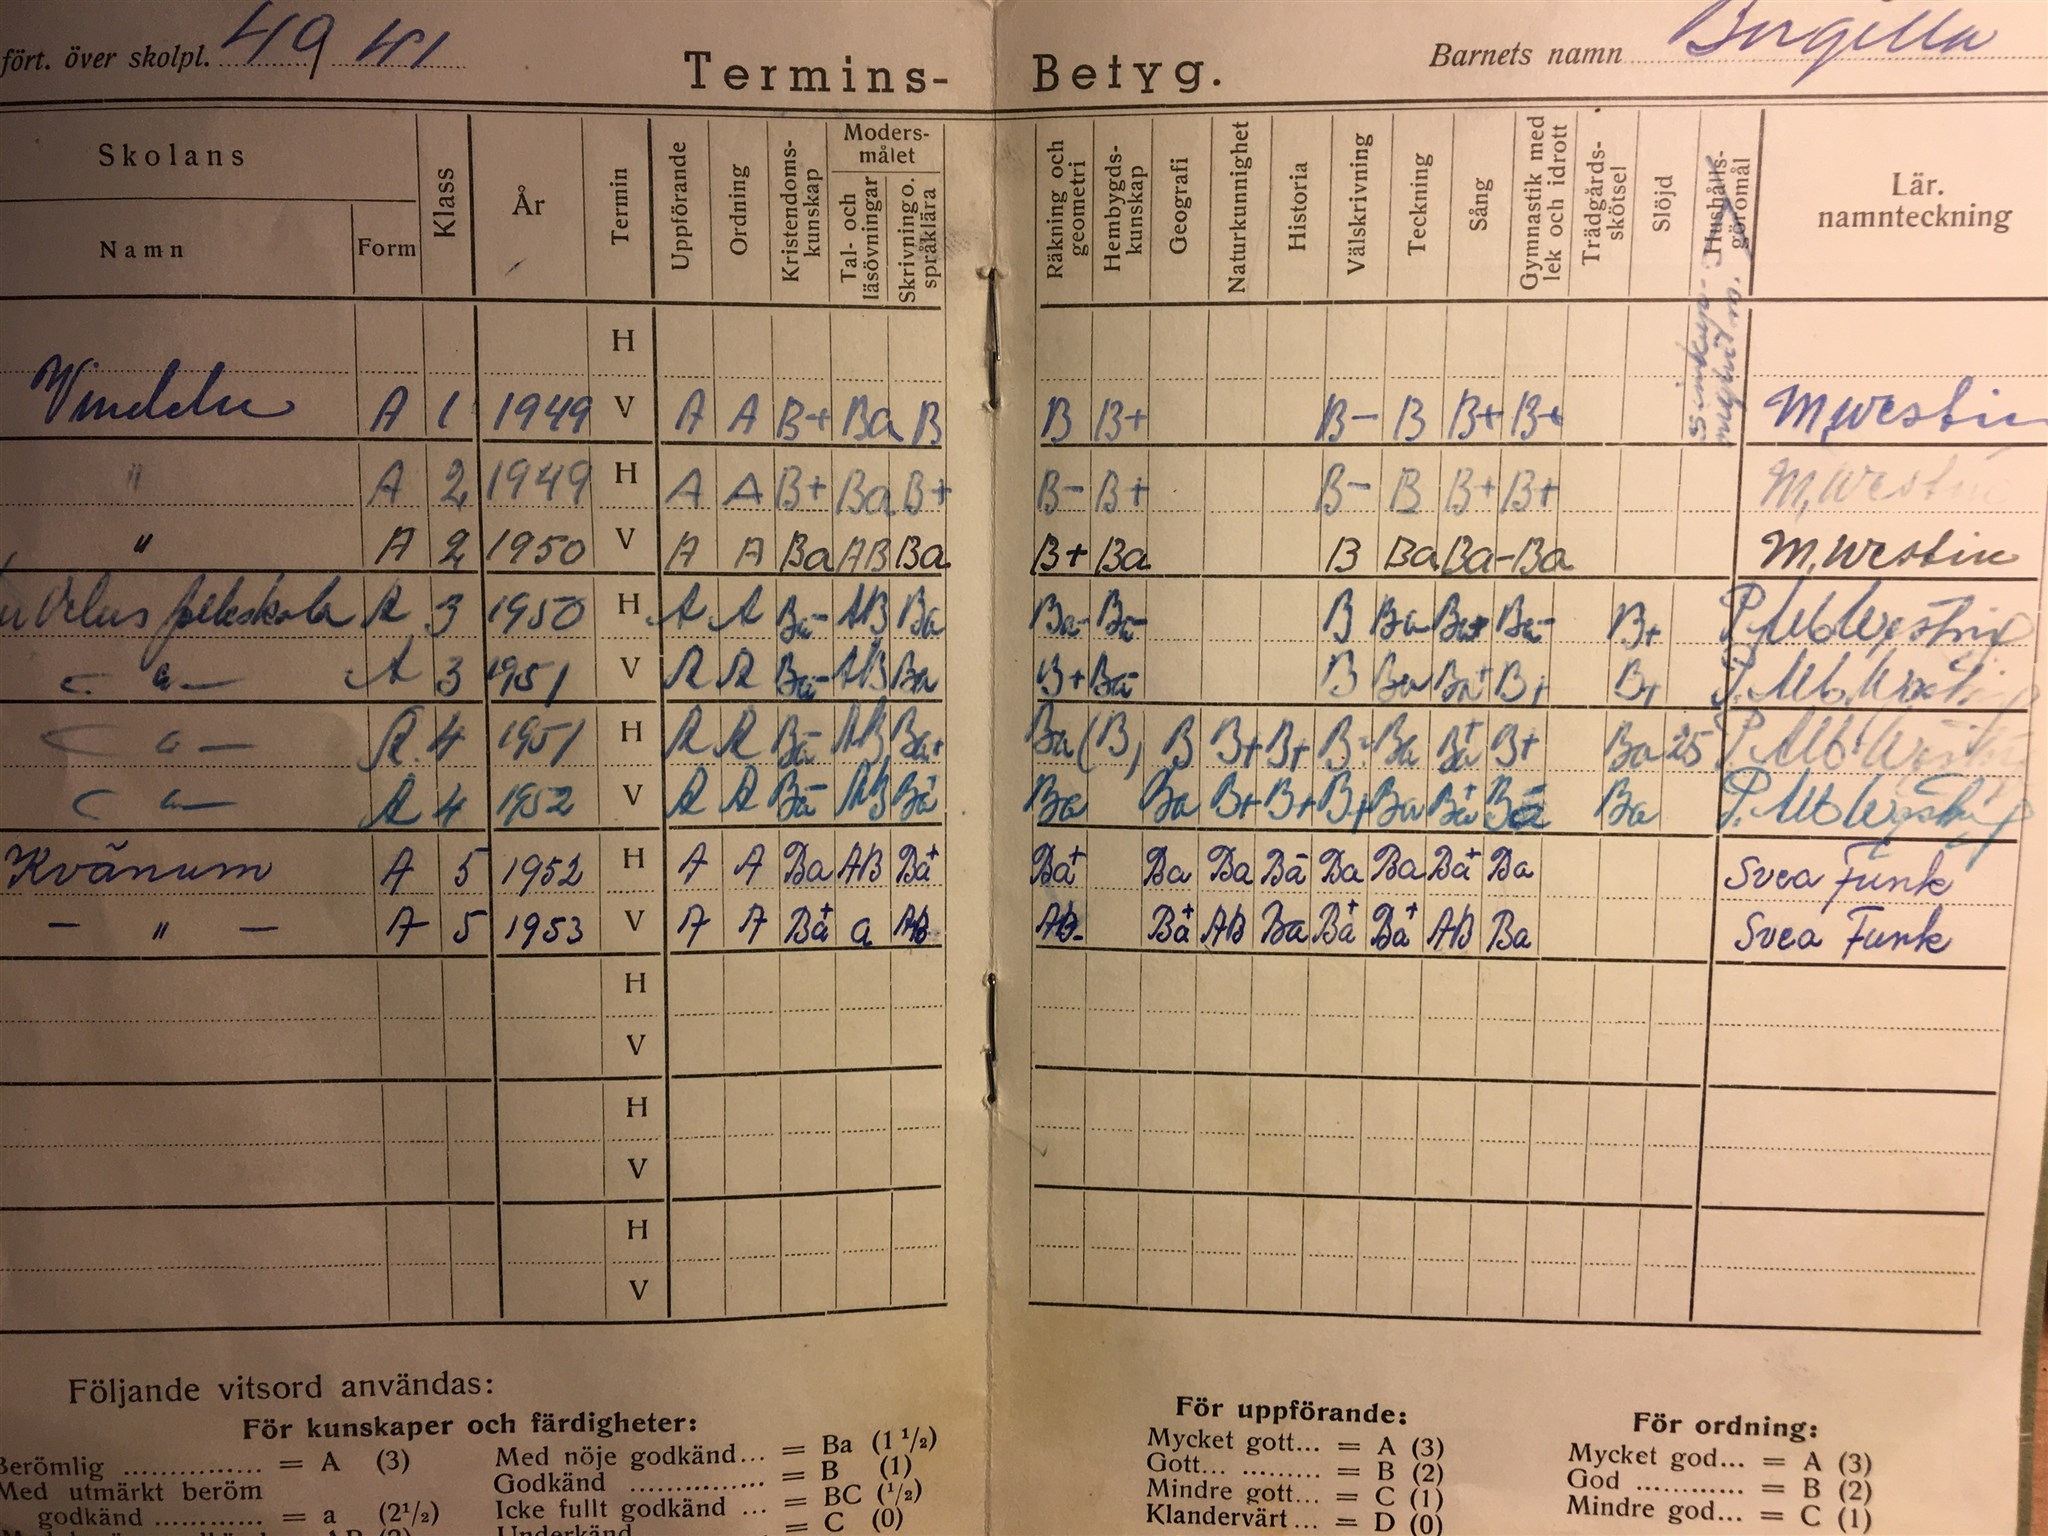 fört. över skolpl. 49 41
Termins- Betyg.
Barnets namn Birgitta
Skolans
Namn
Form
Klass
År
Termin
Uppförande
Ordning
Kristendoms-
kunskap
Moders-
målet
Tal- och
läsövningar
Skrivning o.
språklära
Räkning och
geometri
Hembygds-
kunskap
Geografi
Naturkunnighet
Historia
Välskrivning
Teckning
Sång
Gymnastik med
lek och idrott
Trädgårds-
skötsel
Slöjd
Hushålls-
göromål
Lär.
namnteckning
H
Vindeln A 1 1949 V A A B+ Ba B B B+ B- B B+ B+ M, Westin
" A 2 1949 H A A B+ Ba B+ B- B+ B- B B+ B+ M, Westin
" A 2 1950 V A A Ba AB Ba B+ Ba B Ba Ba- Ba M, Westin
folkskola A 3 1950 H A A Ba- AB Ba Ba- Ba- B Ba Ba+ Ba- B+
— " — A 3 1951 V A A Ba- AB Ba B+ Ba- B Ba Ba+ B+ B+
— " — A 4 1951 H A A Ba- AB Ba+ Ba (B) B B+ B+ B- Ba Ba+ B+ Ba 25
— " — A 4 1952 V A A Ba- AB Ba+ Ba Ba B+ B+ B+ Ba Ba+ Ba- Ba
Kvänum A 5 1952 H A A Ba AB Ba+ Ba+ Ba Ba Ba- Ba Ba Ba+ Ba Svea Funk
— " — A 5 1953 V A A Ba+ a AB AB- Ba+ AB Ba Ba+ Ba+ AB Ba Svea Funk
H
V
H
V
H
V
Följande vitsord användas:
För kunskaper och färdigheter:
Berömlig ............... = A (3)
Med utmärkt beröm
godkänd ............ = a (2½)
Med nöje godkänd... = Ba (1½)
Godkänd ............... = B (1)
Icke fullt godkänd ... = BC (½)
Underkänd = C (0)
För uppförande:
Mycket gott... = A (3)
Gott... ......... = B (2)
Mindre gott... = C (1)
Klandervärt... = D (0)
För ordning:
Mycket god... = A (3)
God ............ = B (2)
Mindre god... = C (1)